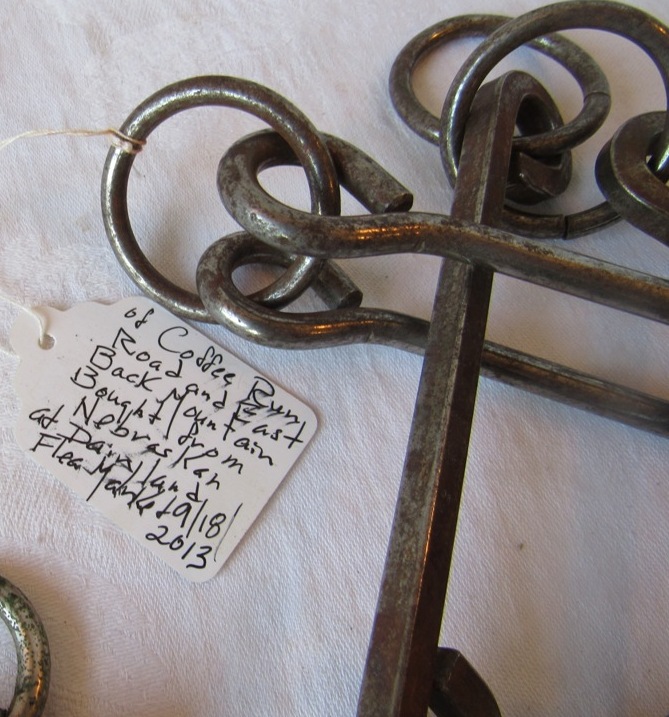 of Coffee Run
Road and East
Back Mountain
Bought from
Nebraskan
at Dairyland
Flea Market 9/18/
2013